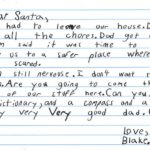 ar Santa,
had to leave our house. D
all the chores. Dad got
m said it was time to
us to a safer place where
scared.
still nervous. I don't want
s. Are you going to come th
of our stuff here. Can you
ictionary, and a compass and a
y very very good dad.
Love,
Blake